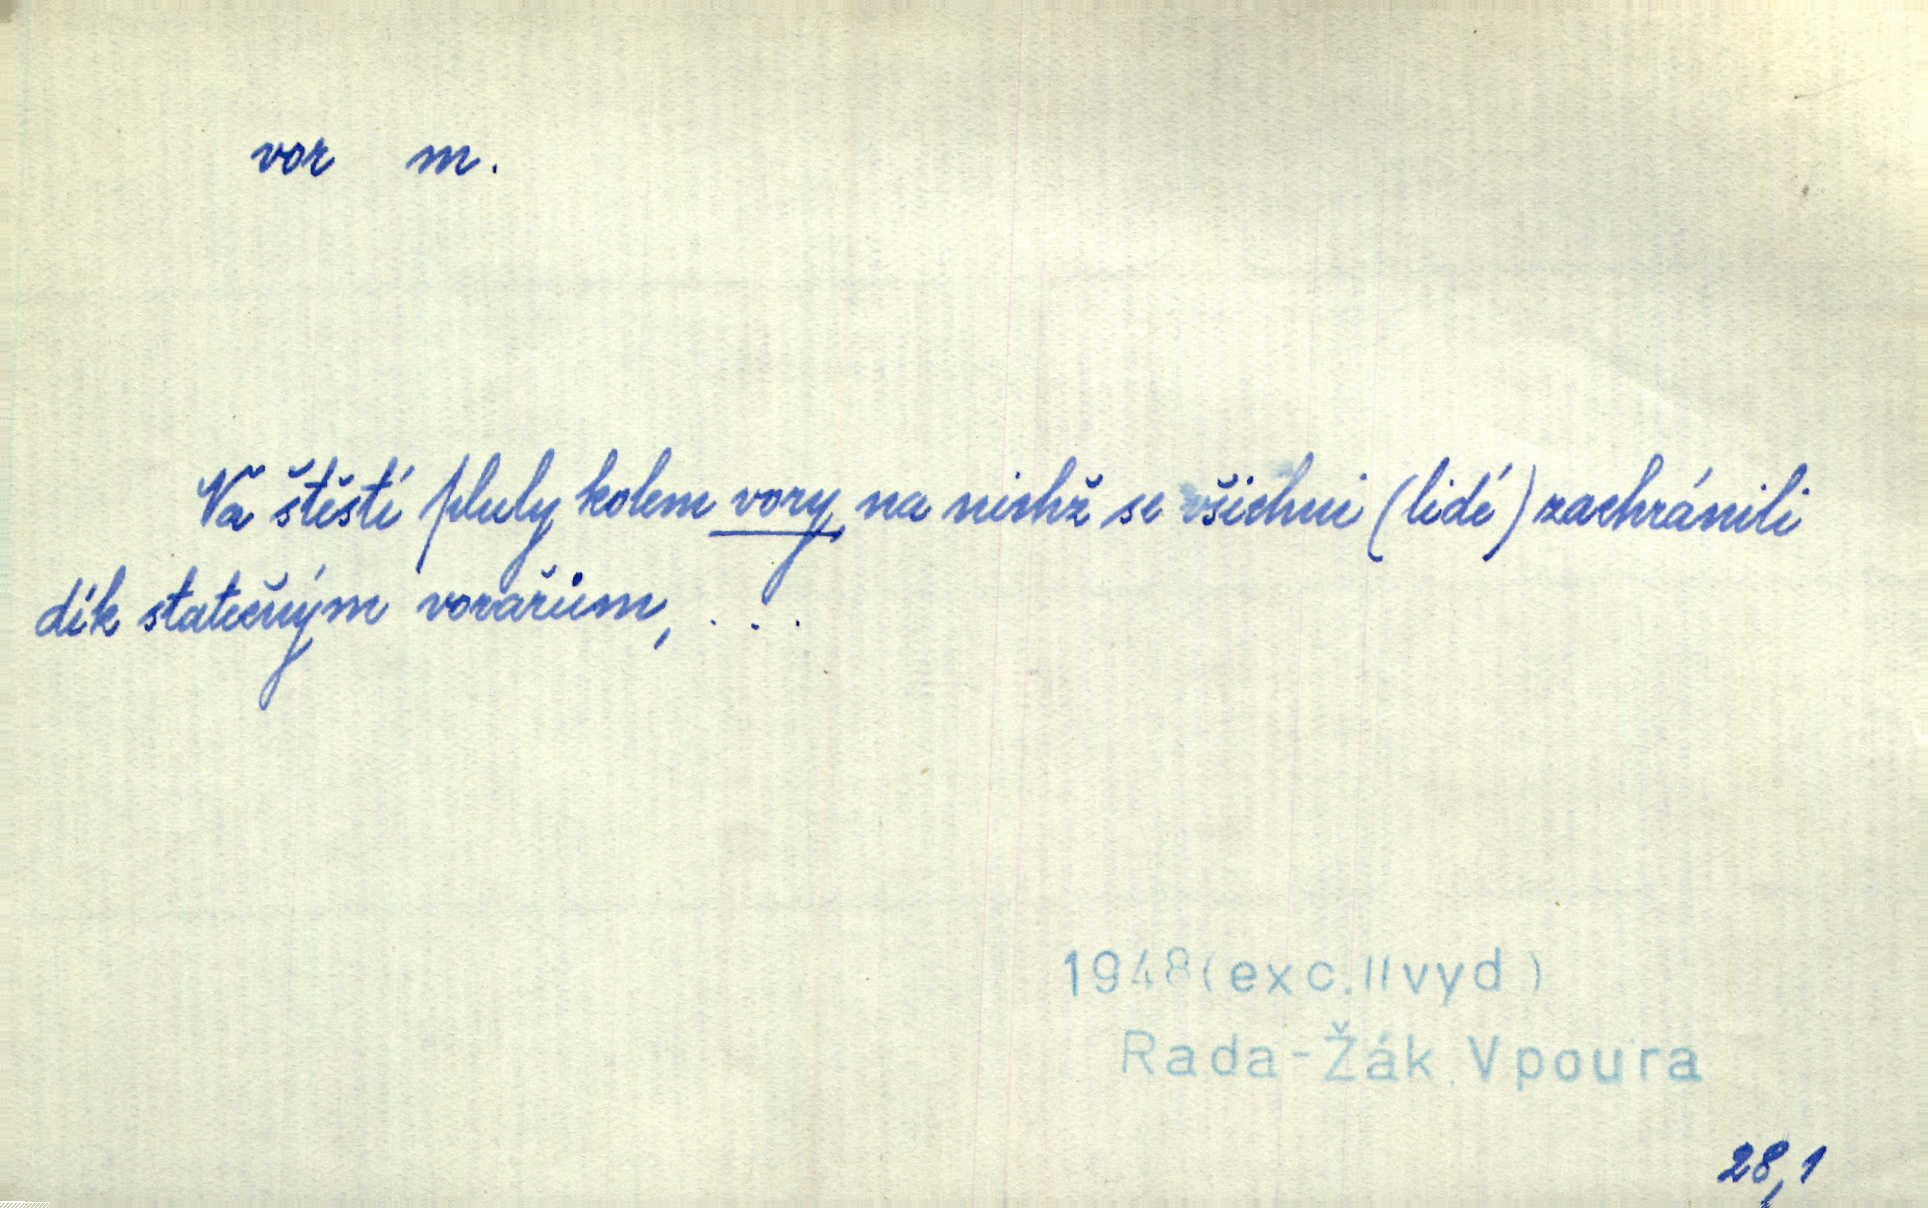 vor m.
Na štěstí pluly kolem vory na nichž se všichni (lidé) zachránili
dík statečným vorařům, . . .
1948 (exc. II vyd)
Rada-Žák Vpoura
28,1